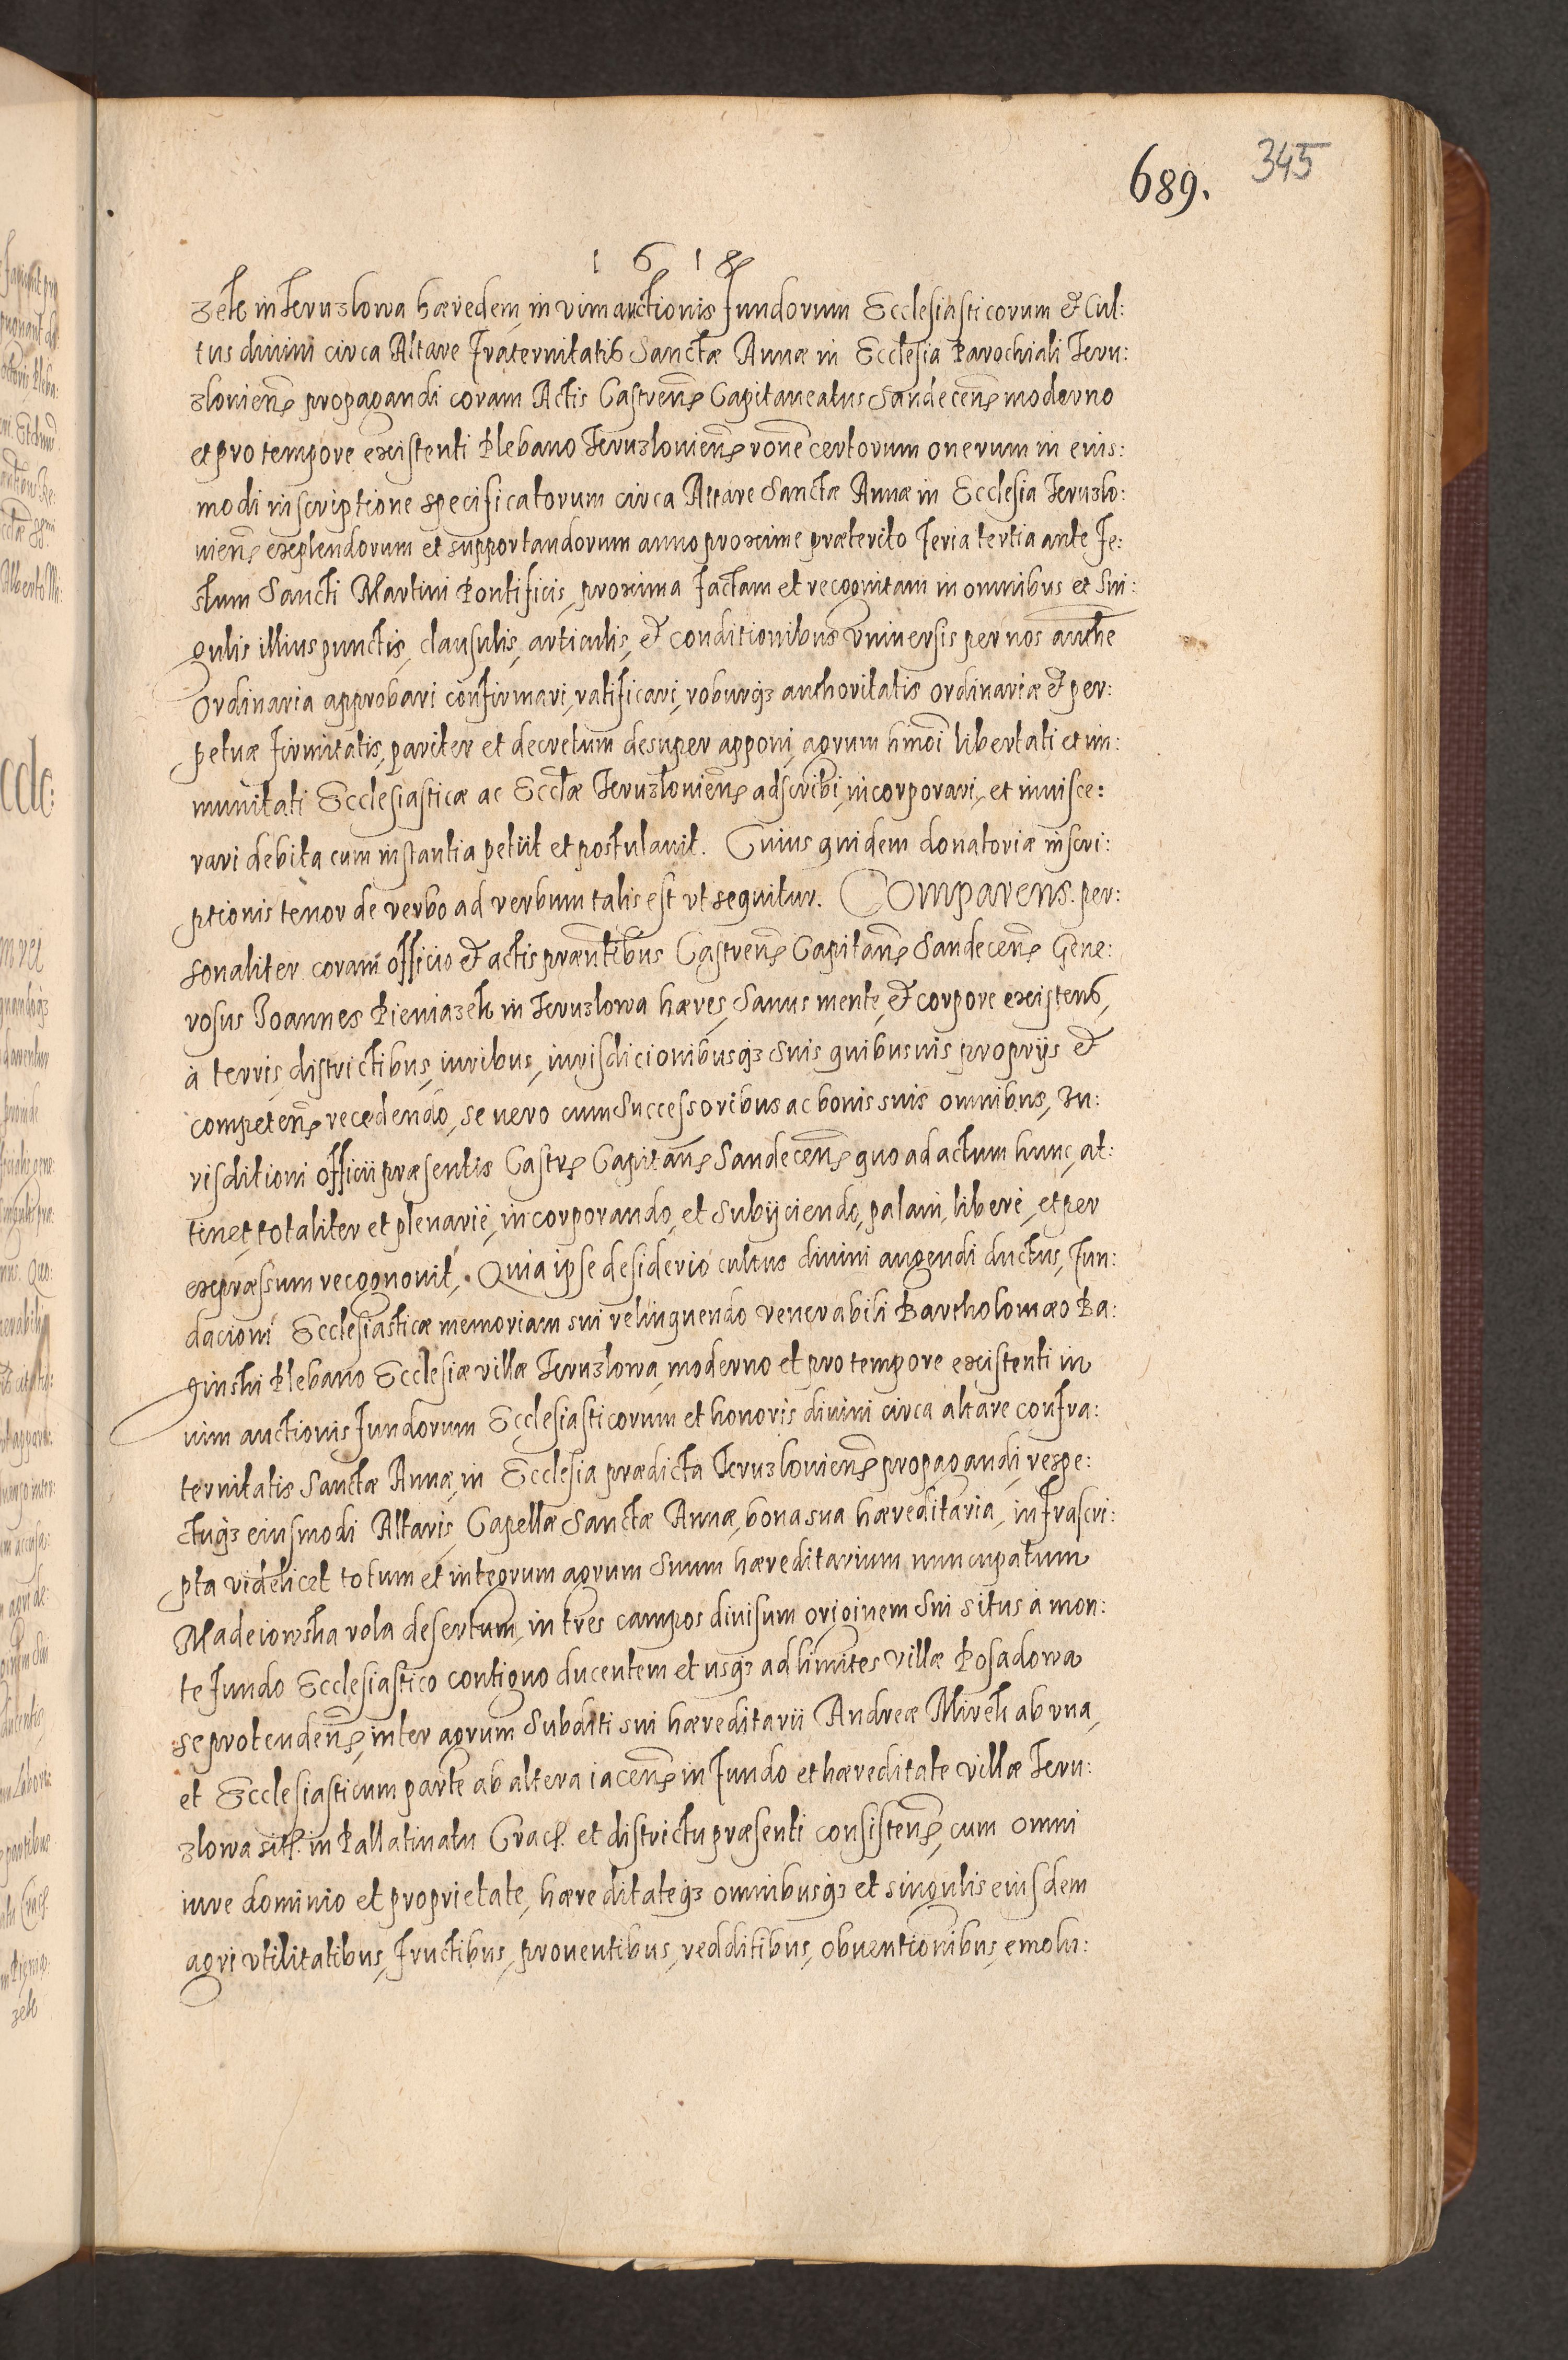 689. 345
1618
zek in Jeruzlowa hæredem, in vim auctionis fundorum Ecclesiasticorum & Cul:
tus diuini circa Altare Fraternitatis Sanctæ Annæ in Ecclesia Parochiali Jeru:
zlouien̄ propagandi coram Actis Castren̄ Capitaneatus Sandecen̄ moderno
et pro tempore existenti Plebano Jeruzlouien̄ rōne certorum onerum in eius:
modi inscriptione specificatorum circa Altare Sanctæ Annæ in Ecclesia Jeruzlo:
uien̄ explendorum et supportandorum anno proxime præterito feria tertia ante fe:
stum Sancti Martini Pontificis, proxima factam et recognitam in omnibus et sin:
gulis illius punctis, clausulis, articulis, & conditionibus vniuersis per nos authe
Ordinaria approbari confirmari, ratificari, roburq3 authoritatis ordinariæ & per:
petuæ firmitatis, pariter et decretum desuper apponi, agrum hm̄oi libertati et im:
munitati Ecclesiasticæ ac Eccłæ Jeruzlouien̄ adscribi, incorporari, et inuisce:
rari debita cum instantia petiit et postulauit. Cuius quidem donatoriæ inscri:
ptionis tenor de verbo ad verbum talis est vt sequitur. Comparens per:
sonaliter coram officio & actis præn̄tibus Castren̄ Capitan̄ Sandecen̄ Gene:
rosus Joannes Pieniazek in Jeruzlowa hæres, sanus mente, & corpore existens,
à terris, districtibus, iuribus, iurisdicionibusq3 suis quibusuis proprijs &
competen̄ recedendo, se uero cum successoribus ac bonis suis omnibus, Iu:
risditioni officii præsentis Castr̄ Capitan̄ Sandecen̄ quo ad actum hunc, at:
tinet, totaliter et plenarie, incorporando, et subijciendo, palam, liberè, et per
expræssum recognouit, Quia ipse desiderio cultus diuini augendi ductus, fun:
dacioni Ecclesiasticæ memoriam sui relinquendo venerabili Bartholomæo Ba:
ginski Plebano Ecclesiæ villæ Jeruzlowa, moderno et pro tempore existenti in
uim auctionis fundorum Ecclesiasticorum et honoris diuini circa altare confra:
ternitatis Sanctæ Annæ, in Ecclesia prædicta Jeruzlouien̄ propagandi, respe:
ctuq3 eiusmodi Altaris, Capellæ Sanctæ Annæ, bona sua hæreditaria, infrascri:
pta videlicet totum et integrum agrum suum hæreditarium nuncupatum
Madeiowska rola desertum, in tres campos diuisum originem sui situs à mon:
te fundo Ecclesiastico contiguo ducentem et usq3 ad limites villæ Posadowa
se protenden̄, inter agrum subditi sui hæreditarii Andreæ Mirek ab vna,
et Ecclesiasticum parte ab altera iacen̄ in fundo et hæreditate villæ Jeru:
zlowa sit. in Pallatinatu Crac. et districtu præsenti consisten̄, cum omni
iure dominio et proprietate, hæreditateq3 omnibusq3 et singulis eiusdem
agri vtilitatibus, fructibus, prouentibus, redditibus, obuentionibus, emolu: